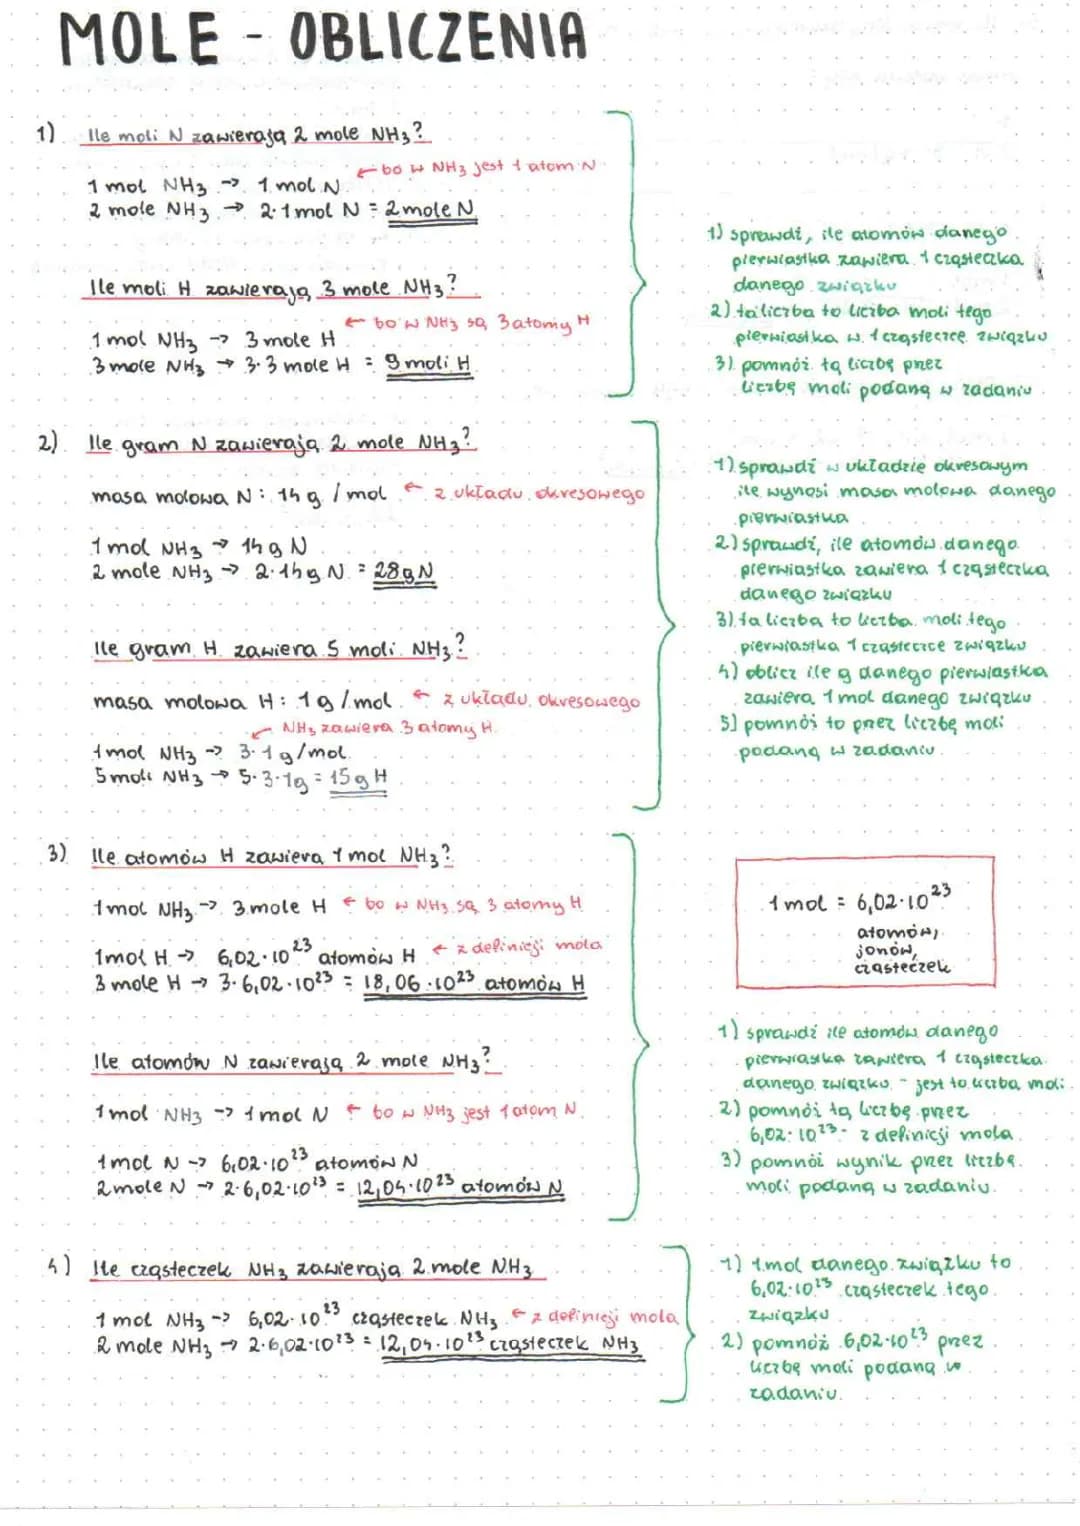 MOLE - OBLICZENIA
1) Ile moli N zawierają 2 mole NH₃?
← bo w NH₃ jest 1 atom N
1 mol NH₃ → 1 mol N
2 mole NH₃ → 2·1 mol N = 2 mole N
Ile moli H zawierają 3 mole NH₃?
← bo w NH₃ są 3 atomy H
1 mol NH₃ → 3 mole H
3 mole NH₃ → 3·3 mole H = 9 moli H
1) sprawdź, ile atomów danego
pierwiastka zawiera 1 cząsteczka
danego związku
2) ta liczba to liczba moli tego
pierwiastka w 1 cząsteczce związku
3) pomnóż tą liczbę przez
liczbę moli podaną w zadaniu
2) Ile gram N zawierają 2 mole NH₃?
masa molowa N: 14 g / mol ← z układu okresowego
1 mol NH₃ → 14 g N
2 mole NH₃ → 2·14 g N = 28 g N
Ile gram H zawiera 5 moli NH₃?
masa molowa H: 1 g / mol ← z układu okresowego
← NH₃ zawiera 3 atomy H
1 mol NH₃ → 3·1 g/mol
5 moli NH₃ → 5·3·1g = 15 g H
1) sprawdź w układzie okresowym
ile wynosi masa molowa danego
pierwiastka
2) sprawdź, ile atomów danego
pierwiastka zawiera 1 cząsteczka
danego związku
3) ta liczba to liczba moli tego
pierwiastka 1 cząsteczce związku
4) oblicz ile g danego pierwiastka
zawiera 1 mol danego związku
5) pomnóż to przez liczbę moli
podaną w zadaniu
3) Ile atomów H zawiera 1 mol NH₃?
1 mol NH₃ → 3 mole H ← bo w NH₃ są 3 atomy H
1 mol H → 6,02·10²³ atomów H ← z definicji mola
3 mole H → 3·6,02·10²³ = 18,06·10²³ atomów H
Ile atomów N zawierają 2 mole NH₃?
1 mol NH₃ → 1 mol N ← bo w NH₃ jest 1 atom N
1 mol N → 6,02·10²³ atomów N
2 mole N → 2·6,02·10²³ = 12,04·10²³ atomów N
1 mol = 6,02·10²³
atomów,
jonów,
cząsteczek
1) sprawdź ile atomów danego
pierwiastka zawiera 1 cząsteczka
danego związku - jest to liczba moli
2) pomnóż tą liczbę przez
6,02·10²³ - z definicji mola
3) pomnóż wynik przez liczbę
moli podaną w zadaniu
4) Ile cząsteczek NH₃ zawierają 2 mole NH₃
1 mol NH₃ → 6,02·10²³ cząsteczek NH₃ ← z definicji mola
2 mole NH₃ → 2·6,02·10²³ = 12,04·10²³ cząsteczek NH₃
1) 1 mol danego związku to
6,02·10²³ cząsteczek tego
związku
2) pomnóż 6,02·10²³ przez
liczbę moli podaną w
zadaniu.